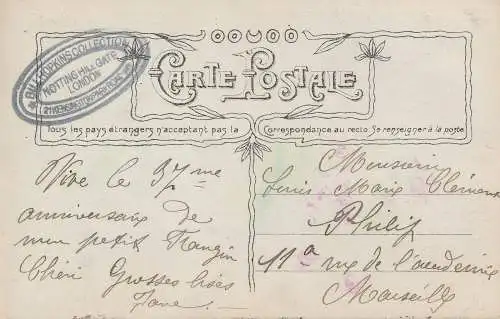 BILL HOPKINS COLLECTION
NOTTING HILL GATE
LONDON
CARTE POSTALE
Tous les pays étrangers n'acceptent pas la Correspondance au recto Se renseigner à la poste
Vive le 37me
anniversaire de
mon petit
Chéri Grosses bises
Jane
Monsieur
Louis Marie Clément
Philip
11a rue de l'académie
Marseille